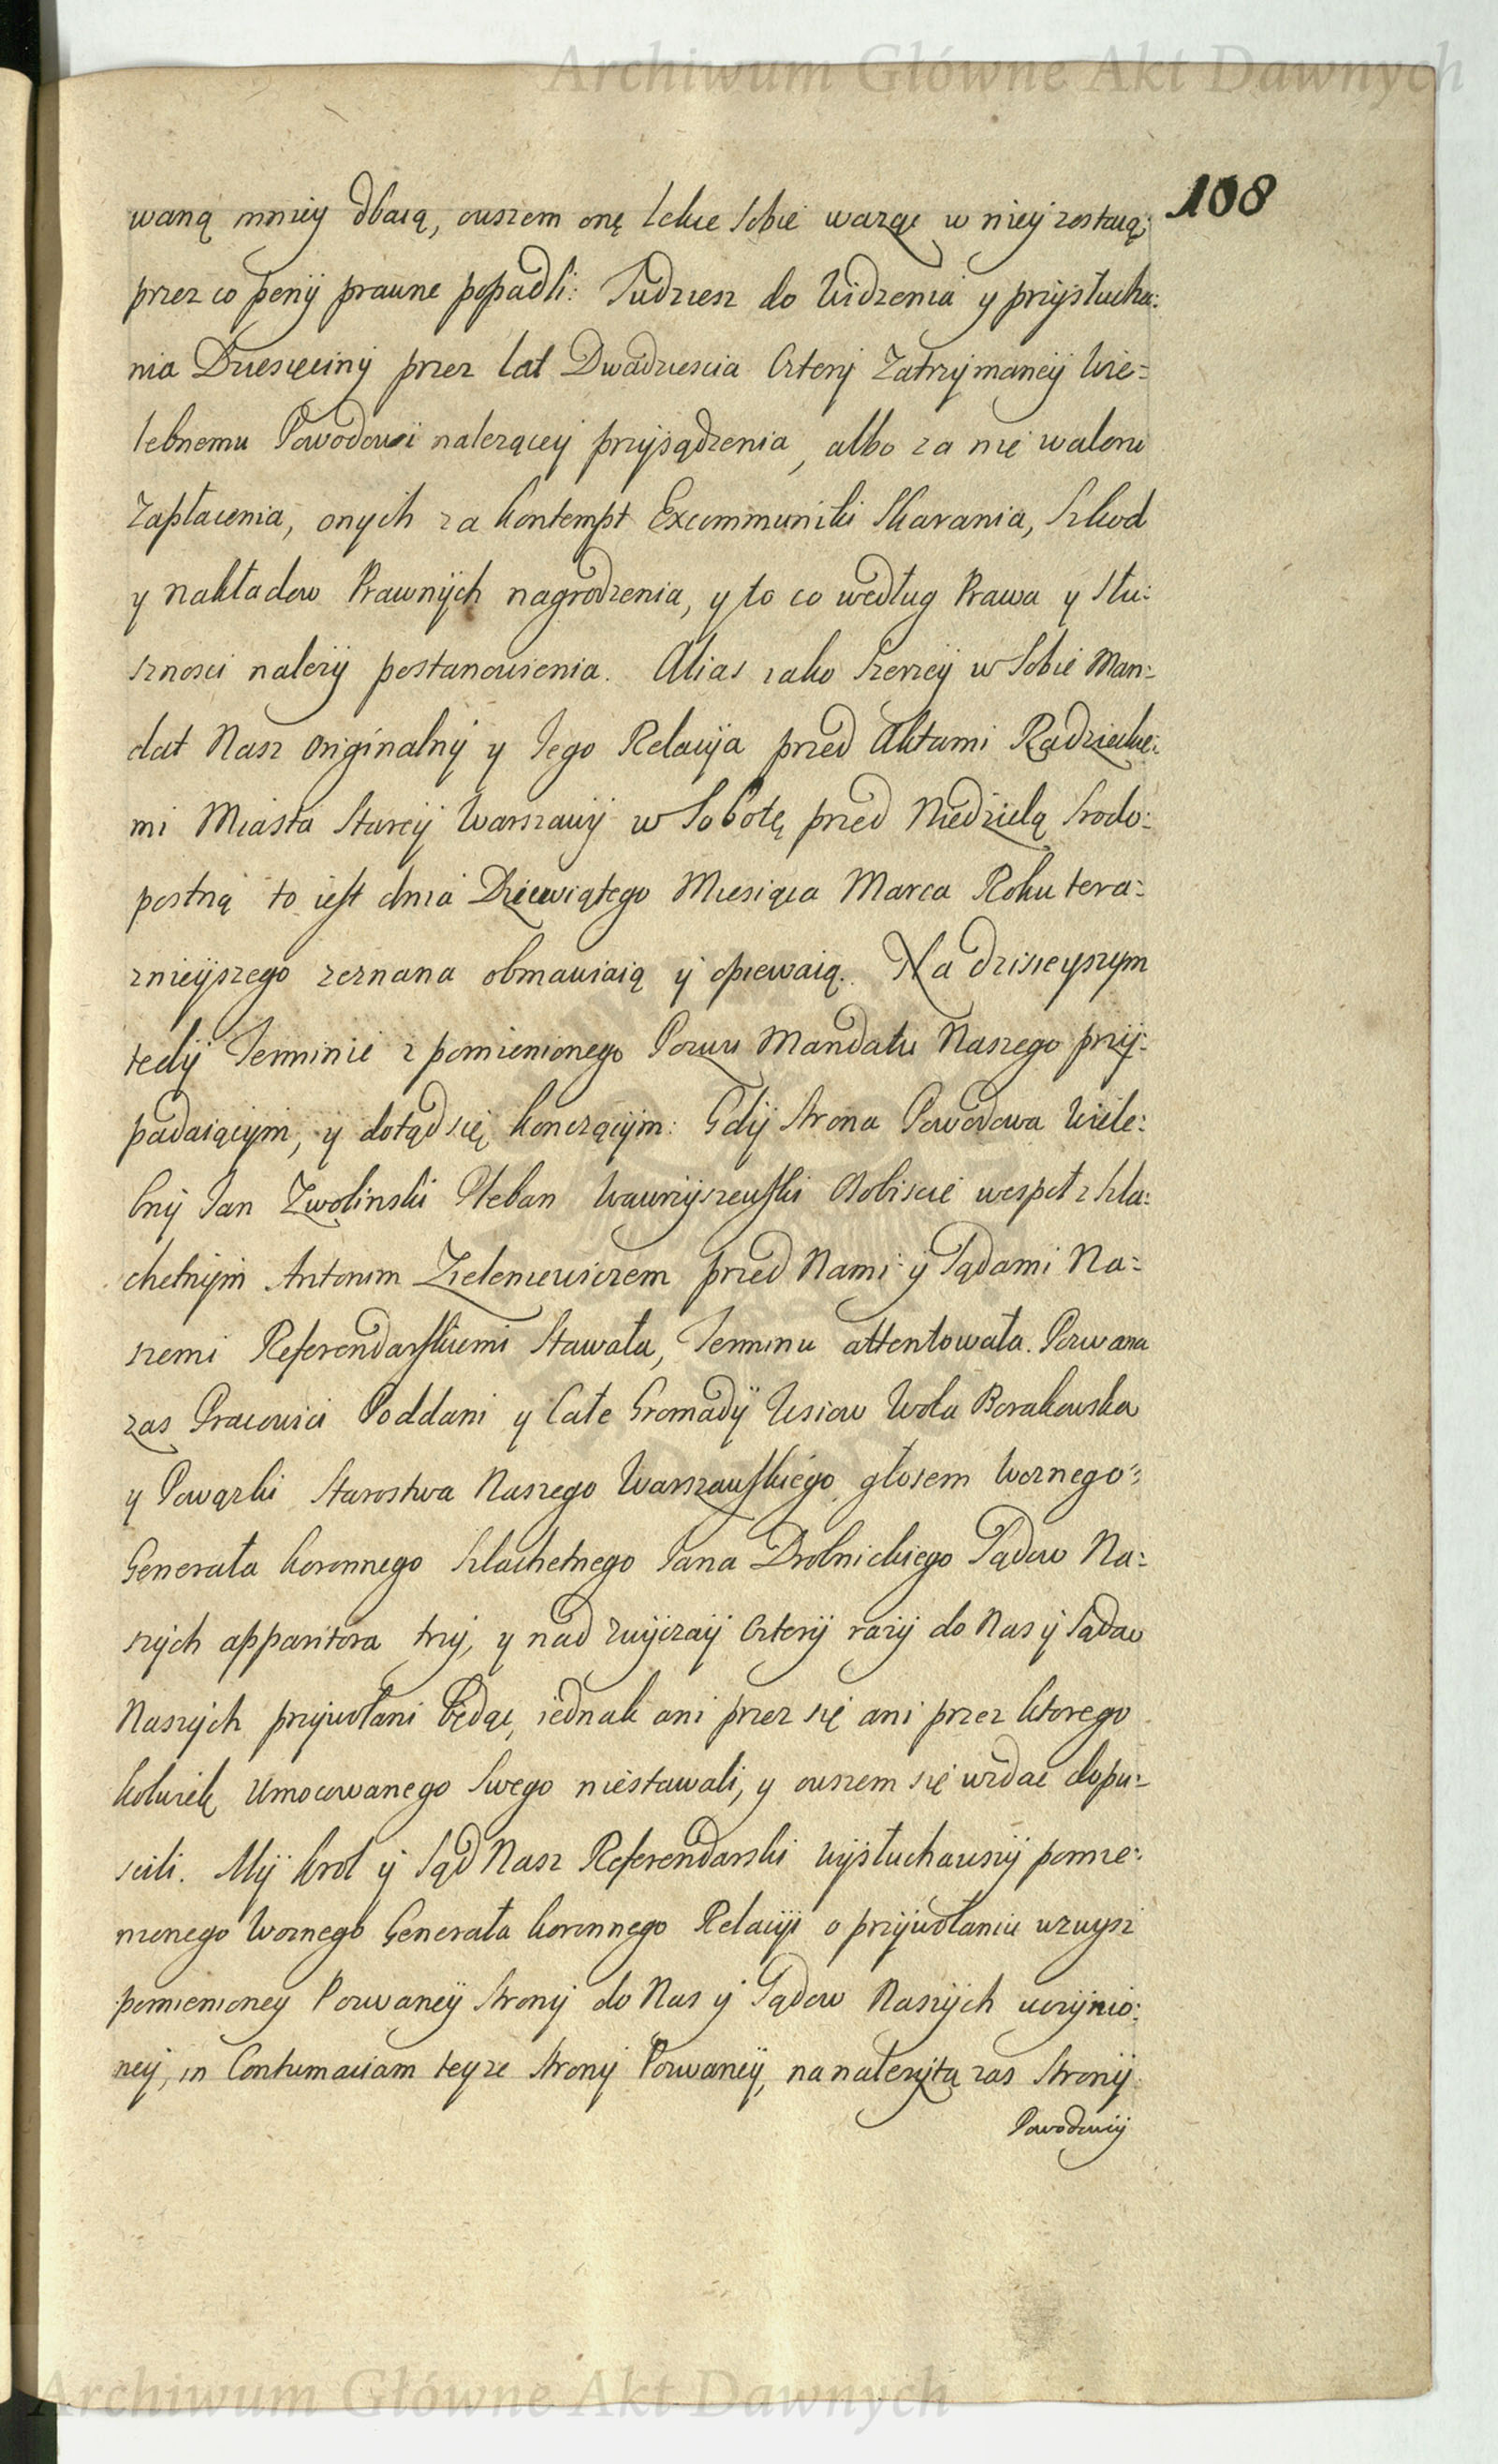 Archiwum Główne Akt Dawnych
108
waną mniey dbaią, owszem onę lekce sobie ważąc w niey zostaią;
przez co peny prawne popadli: Tudziesz do Widzenia y przysłucha:
nia Dziesięciny przez lat Dwadziescia Cztery Zatrzymaney Wie=
lebnemu Powodowi nalezącey przysądzenia, albo za nię waloru
Zapłacenia, onych za kontempt Excommuniki Skarania, Szkod
y nakładow Prawnych nagrodzenia, y to co według Prawa y Słu:
sznosci nalezy postanowienia. Alias iako szerzey w Sobie Man=
dat Nasz originalny y Jego Relacya przed Aktami Radzieckie:
mi Miasta Starey Warszawy w Sobotę przed Niedzielą Srodo:
postną to iest dnia Dziewiątego Miesiąca Marca Roku tera=
znieyszego zeznana obmawiaią y opiewaią. Na dzisieyszym
tedy Terminie z pomienionego Pozwu Mandatu Naszego przy:
padaiącym, y dotąd się konczącym: Gdy Strona Powodowa Wiele:
bny Jan Zwolinski Pleban Wawrzyszewski Osobiscie wespoł z Szla:
chetnym Antonim Zieleniewiczem przed Nami y Sądami Na=
szemi Referendarskiemi Stawała, Terminu attentowała. Pozwana
zas Pracowici Poddani y Całe Gromady Wsiow Wola Borakowska
y Powązki Starostwa Naszego Warszawskiego głosem Woznego
Generała koronnego Szlachetnego Jana Drolnickiego Sądow Na:
szych apparitora trzy, y nad zwyczay Cztery razy do Nas y Sądow
Naszych przywołani będąc, iednak ani przez się ani przez ktorego
kolwiek Umocowanego Swego niestawali, y owszem się wzdać dopu=
scili. My krol y Sąd Nasz Referendarski wysłuchawszy pomie:
nionego Woznego Generała koronnego Relacyi o przywołaniu wzwysz
pomienioney Pozwaney Strony do Nas y Sądow Naszych uczynio:
ney, in Contumaciam teyze Strony Pozwaney, na naležytą zas Strony
Powodowey
Archiwum Główne Akt Dawnych